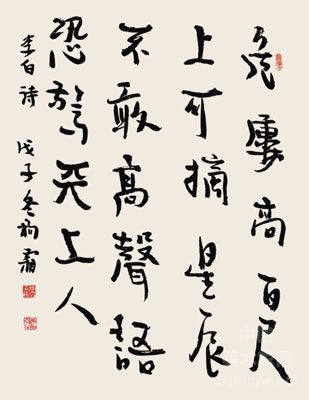 危廔高百尺
上可摘星辰
不敢高聲語
恐驚天上人
李白詩 戊子冬